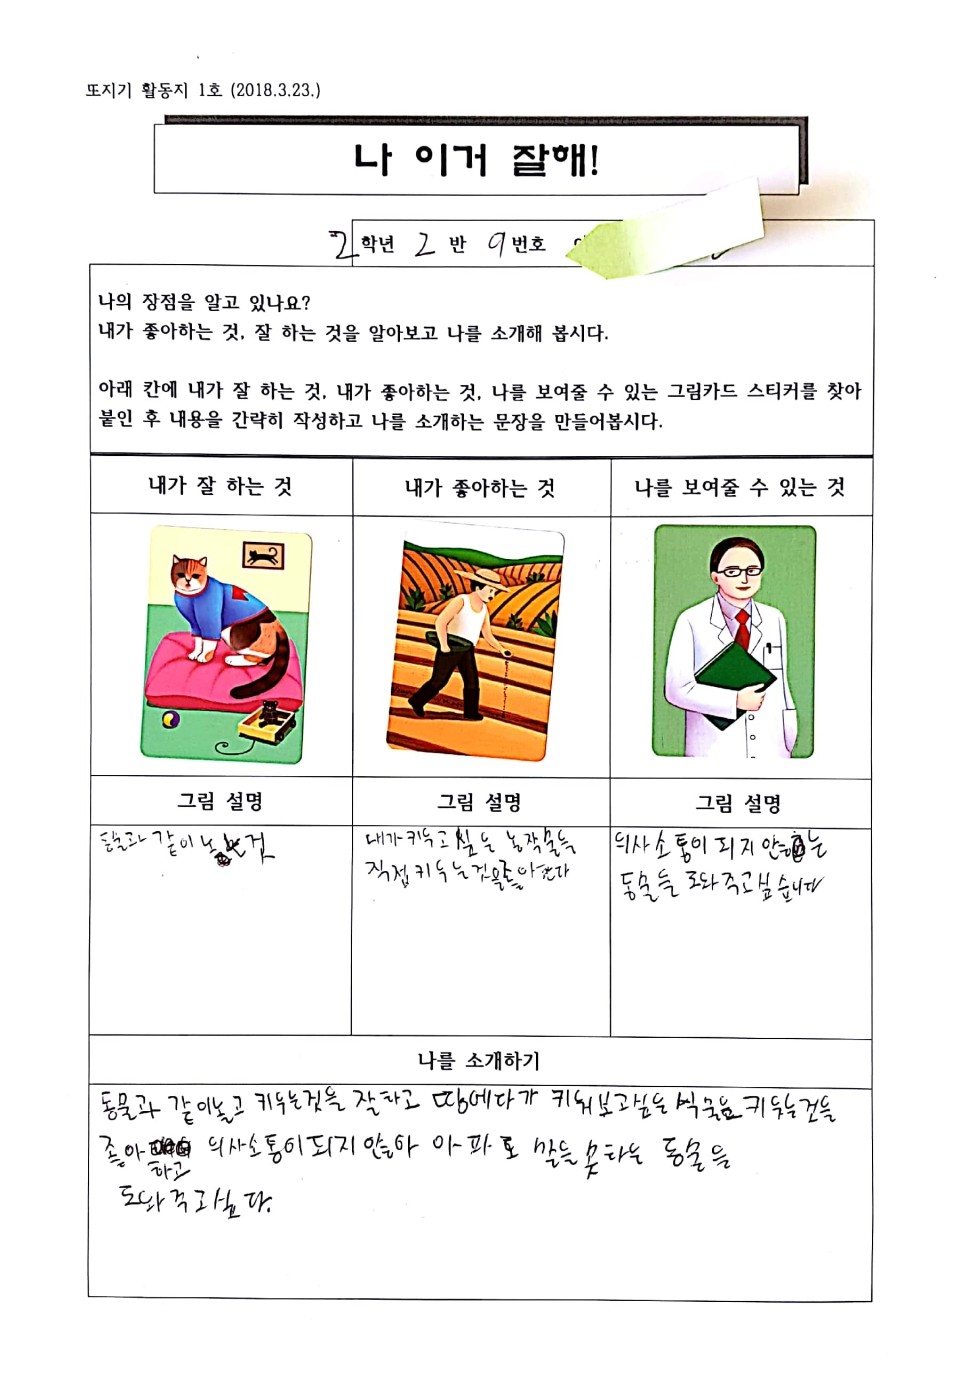 또지기 활동지 1호 (2018.3.23.)
나 이거 잘해!
2학년 2 반 9번호
나의 장점을 알고 있나요?
내가 좋아하는 것, 잘 하는 것을 알아보고 나를 소개해 봅시다.
아래 칸에 내가 잘 하는 것, 내가 좋아하는 것, 나를 보여줄 수 있는 그림카드 스티커를 찾아
붙인 후 내용을 간략히 작성하고 나를 소개하는 문장을 만들어봅시다.
내가 잘 하는 것
내가 좋아하는 것
나를 보여줄 수 있는 것
그림 설명
그림 설명
그림 설명
동물과 같이 노는것
내가키우고 싶은 농작물을
직접 키우는것을좋아한다
의사소통이 되지 안는
동물을 도와주고싶습니다
나를 소개하기
동물과 같이놀고 키우는것을 잘하고 땅에다가 키워보고싶은 식물을 키우는것을
좋아하고 의사소통이되지 안아 아파도 말을 못하는 동물을
도와주고싶다.